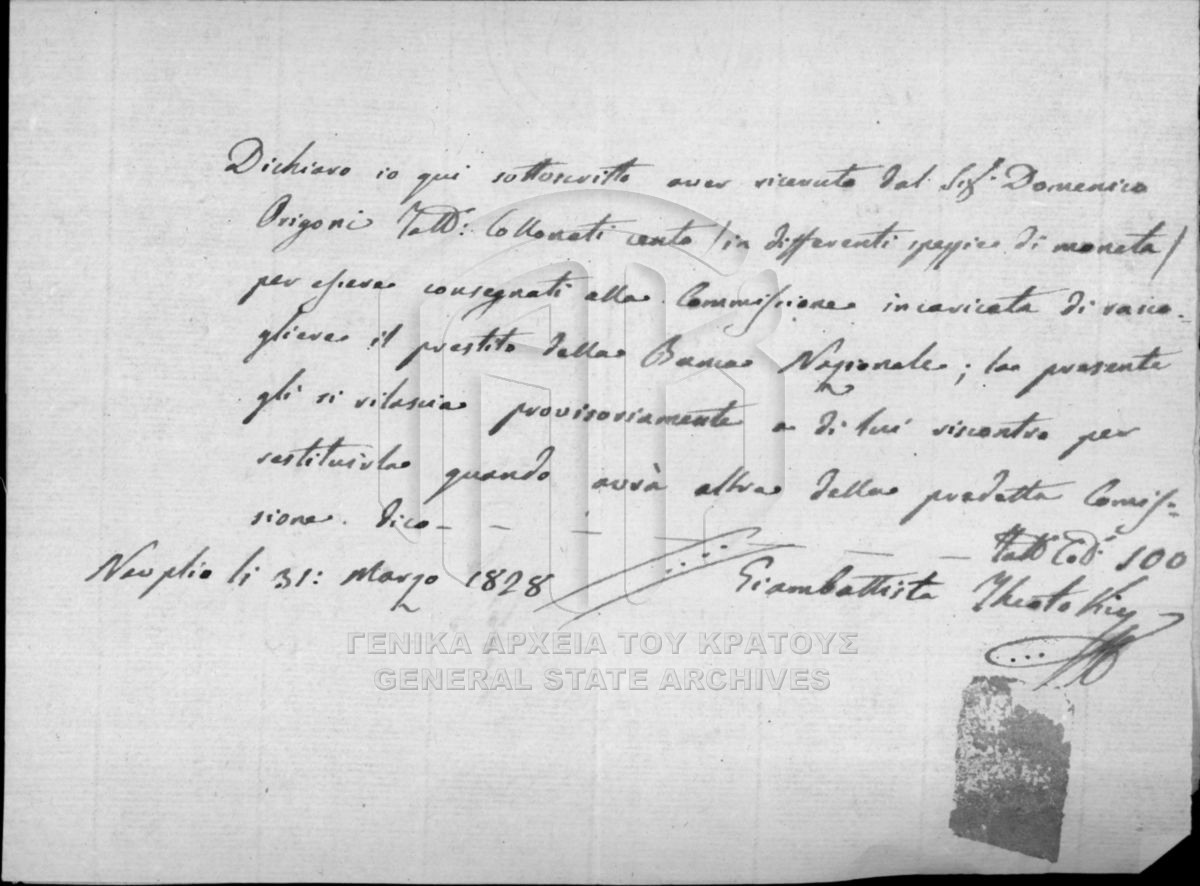 Dichiaro io qui sottoscritto aver ricevuto dal Sigr. Domenico
Origoni Tallri: Collonati cento /in differenti spezzie di moneta/
per essere consegnati alla Commissione incaricata di racco-
gliere il prestito della Banca Nazionale; la presente
gli si rilascia provisoriamente a di lui riscontro per
restituirla quando avrà altra della predetta Comis-
sione. dico - - - - - - Tallri Codi. 100
Neuplio li 31: Marzo 1828 Giambattista Theotoky
ΓΕΝΙΚΑ ΑΡΧΕΙΑ ΤΟΥ ΚΡΑΤΟΥΣ
GENERAL STATE ARCHIVES